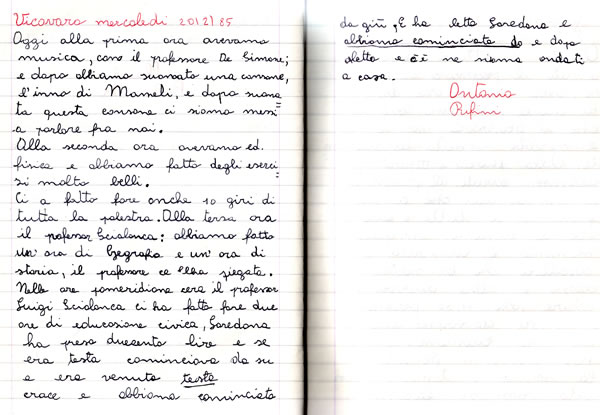 Vicovaro mercoledì 20|2|85
Oggi alla prima ora avevamo
musica, cono il professore De Simone;
e dopo abbiamo suonato una canzone,
l'inno di Mameli, e dopo suona=
ta questa canzone ci siamo messi
a parlare fra noi.
Alla seconda ora avevamo ed.
fisica e abbiamo fatto degli eserci=
zi molto belli.
Ci a fatto fare anche 10 giri di
tutta la palestra. Alla terza ora
il professor Scialanca: abbiamo fatto
un'ora di Geografia e un'ora di
storia, il professore ce l'ha spiegata.
Nelle ore pomeridiane cera il professor
Luigi Scialanca ci ha fatto fare due
ore di educazione civica, Loredana
ha preso duecento lire e se
era testa cominciava da su
e era venuto testa
croce e abbiamo cominciato
da giù, E ha letto Loredana e
abbiamo cominciato da e dopo
letto e ce ne siamo andati
a casa.
Antonio
Rufini